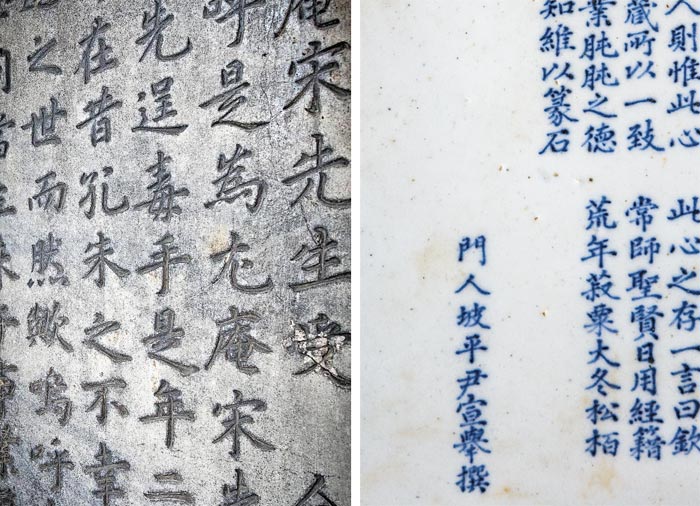 庵宋先生受
呼是為尤庵宋先
先逞毒手是年二
在昔孔朱之不幸
之世而然歟嗚呼
人則惟此心　此心之存一言曰欽
藏所以一致　常師聖賢日用經籍
業肫肫之德　荒年菽粟大冬松栢
知維以篆石
門人坡平尹宣擧撰